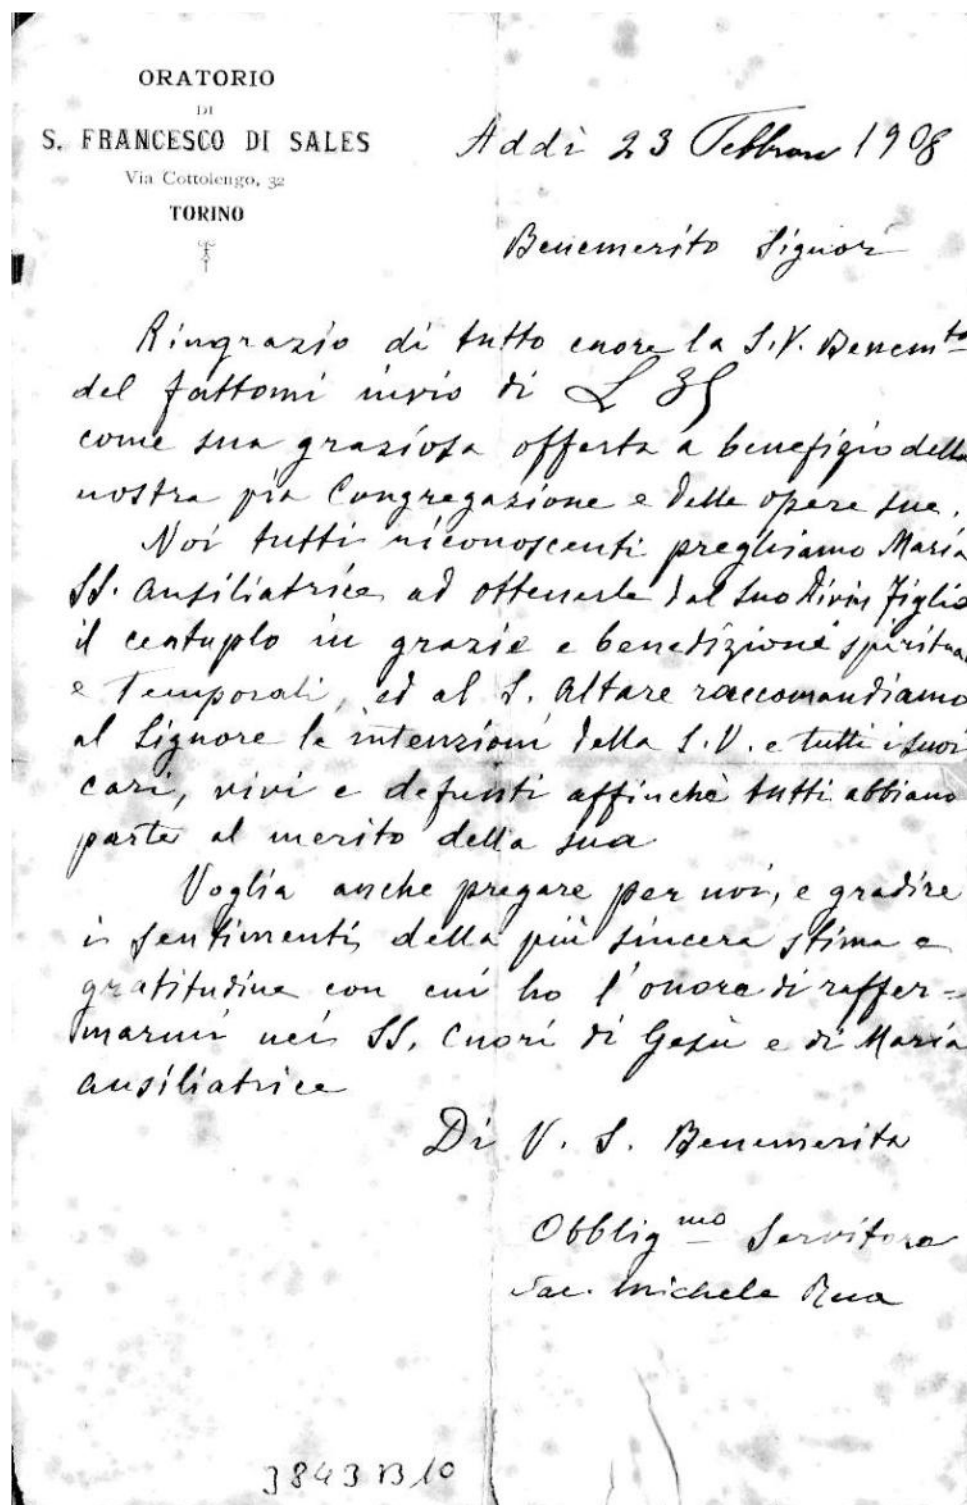 ORATORIO
DI
S. FRANCESCO DI SALES
Via Cottolengo, 32
TORINO
Addì 23 Febbraio 1908
Benemerito Signor
Ringrazio di tutto cuore la S.V. Benemto
del fattomi invio di L 35
come sua graziosa offerta a benefizio della
nostra pia Congregazione e delle opere sue.
Noi tutti riconoscenti preghiamo Maria
SS. Ausiliatrice ad ottenerle dal suo Divin Figlio
il centuplo in grazie e benedizioni spiritua
e Temporali, ed al S. Altare raccomandiamo
al Signore le intenzioni della S.V. e tutti i suoi
cari, vivi e defunti affinchè tutti abbiano
parte al merito della sua
Voglia anche pregare per noi, e gradire
i sentimenti della più sincera stima e
gratitudine con cui ho l'onore di raffer=
marmi nei SS. Cuori di Gesù e di Maria
Ausiliatrice
Di V. S. Benemerita
Obbligmo Servitore
Sac. Michele Rua
3843 B10